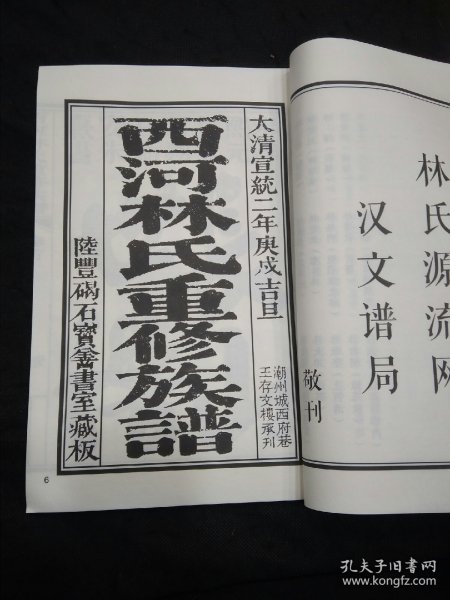 林氏源流网
汉文谱局
敬刊
大清宣統二年庚戌吉旦
潮州城西府巷
王存文樓承刊
西河林氏重修族譜
陸豐碣石寶金書室藏板
6
孔夫子旧书网
www.kongfz.com